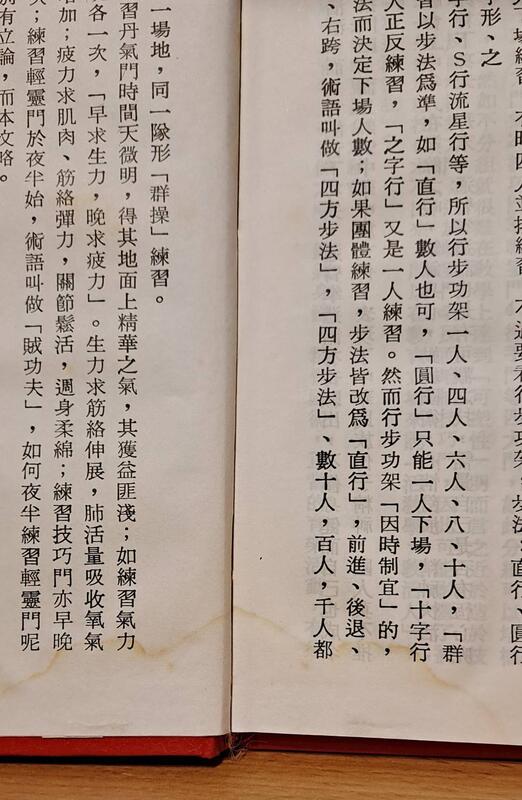 要看行步功架，步法：直行、圓行
形、之
字行、S行流星行等，所以行步功架一人、四人、六人、八、十人，「群
習以步法爲準，如「直行」數人也可，「圓行」只能一人下場，「十字行
人正反練習，「之字行」又是一人練習。然而行步功架「因時制宜」的，
法而決定下場人數；如果團體練習，步法皆改爲「直行」，前進、後退、
、右跨，術語叫做「四方步法」，「四方步法」、數十人，百人，千人都
一場地，同一隊形「群操」練習。
習丹氣門時間天微明，得其地面上精華之氣，其獲益匪淺；如練習氣力
各一次，「早求生力，晚求疲力」。生力求筋絡伸展，肺活量吸收氧氣
增加；疲力求肌肉、筋絡彈力，關節鬆活，週身柔綿；練習技巧門亦早晚
次；練習輕靈門於夜半始，術語叫做「賊功夫」，如何夜半練習輕靈門呢
別有立論，而本文略。